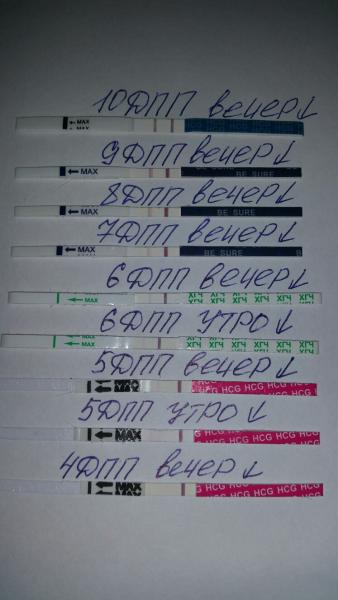 10ДПП вечер↓
← MAX
9ДПП вечер↓
← MAX
8ДПП вечер↓
← MAX BE SURE
7ДПП вечер↓
← MAX BE SURE
6ДПП вечер↓
← MAX ХГЧ ХГЧ ХГЧ ХГЧ ХГЧ ХГЧ
6ДПП УТРО↓
← MAX ХГЧ ХГЧ ХГЧ ХГЧ ХГЧ ХГЧ
5ДПП вечер↓
HCG HCG HCG HCG
5ДПП УТРО↓
← MAX HCG HCG HCG HCG
4ДПП вечер↓
MAX HCG HCG HCG HCG